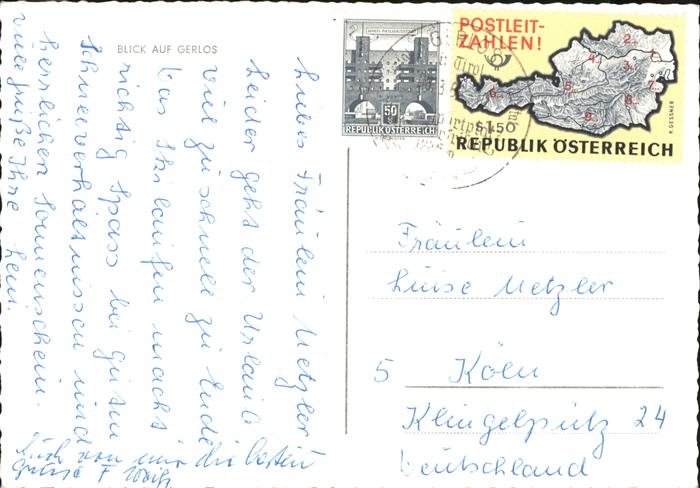 BLICK AUF GERLOS
Liebes Fräulein Metzler
Leider geht der Urlaub
viel zu schnell zu Ende
Das Skilaufen macht
richtig Spass bei guten
Schneeverhältnissen und
herrlichen Sonnenschein.
viele Grüße Ihre
Auch von mir die besten
Grüsse F
50
REPUBLIK ÖSTERREICH
POSTLEIT-
ZAHLEN!
2...
1...
4...
3...
7...
6...
5...
8...
9...
S 1.50
K. GESSNER
REPUBLIK ÖSTERREICH
GERLOS
Tirol
Fräulein
Luise Metzler
5 Köln
Klingelpütz 24
Deutschland